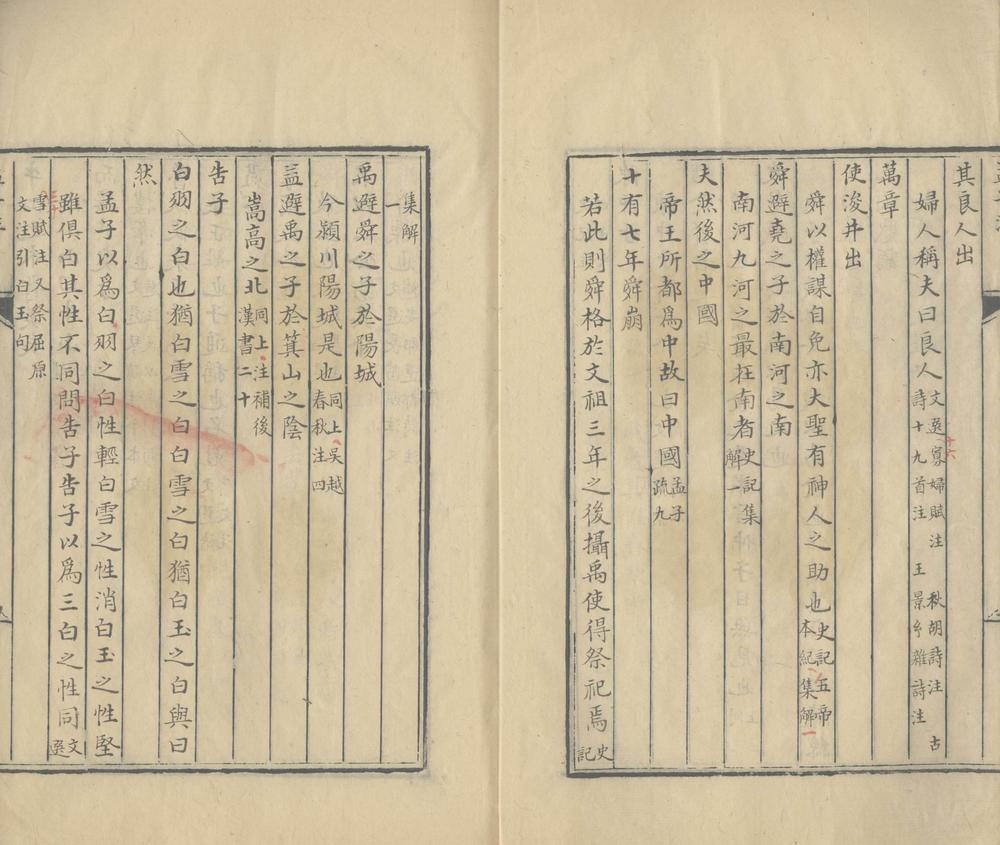 其良人出
婦人稱夫曰良人文選寡婦賦注 秋胡詩注 古詩十九首注 王景㣲雜詩注
十六
萬章
使浚井出
舜以權謀自免亦大聖有神人之助也史記五帝本紀集解一
舜避堯之子於南河之南
南河九河之最在南者史記集解一
夫然後之中國
帝王所都爲中故曰中國孟子疏九
十有七年舜崩
若此則舜格於文祖三年之後攝禹使得祭祀焉史記
集解一
禹避舜之子於陽城
今潁川陽城是也同上吳越春秋注四
益避禹之子於箕山之陰
嵩高之北同上注補後漢書二十
告子
白羽之白也猶白雪之白白雪之白猶白玉之白與曰
然
孟子以爲白羽之白性輕白雪之性消白玉之性堅
雖俱白其性不同問告子告子以爲三白之性同文選
雪賦注又祭屈原文注引白玉句